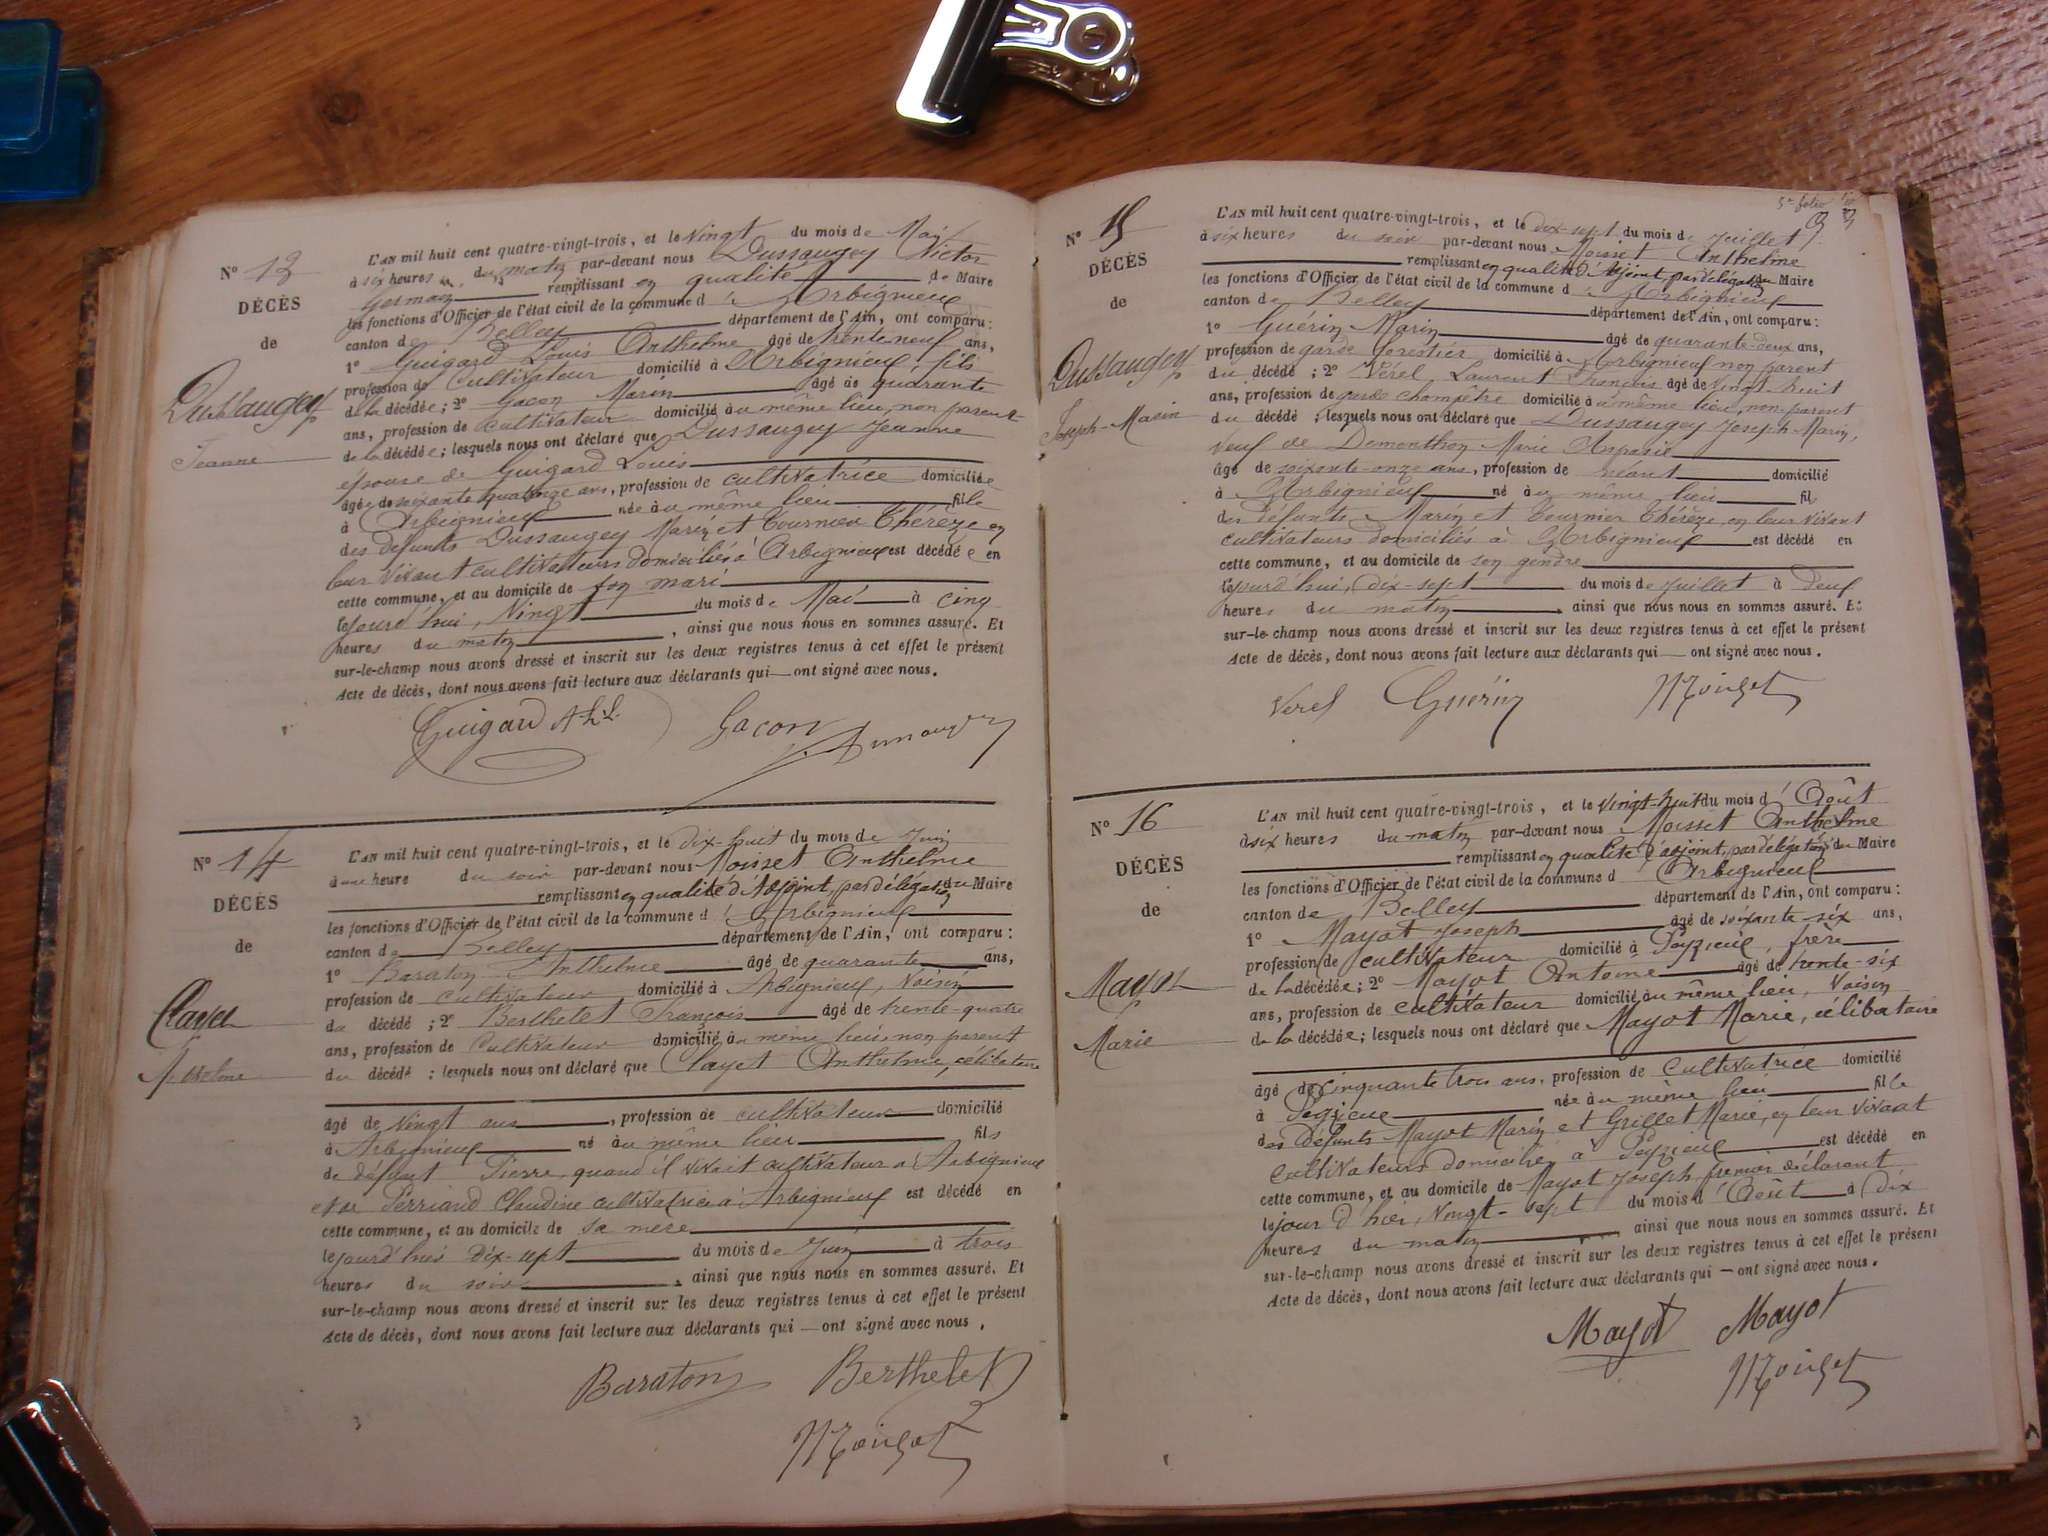 N° 13
DÉCÈS
de
Dussaugey
Jeanne
L'AN mil huit cent quatre-vingt-trois, et le Vingt du mois de Mai
à six heures du matin par-devant nous Dussaugey Victor
Germain remplissant en qualité de Maire
les fonctions d'Officier de l'état civil de la commune d'Arbignieu
canton de Belley département de l'Ain, ont comparu :
1° Guigard Louis Anthelme âgé de trente neuf ans,
profession de Cultivateur domicilié à Arbignieu fils
de la décédée ; 2° Gacon Marin âgé de quarante
ans, profession de cultivateur domicilié au même lieu, non parent
de la décédée ; lesquels nous ont déclaré que Dussaugey Jeanne
épouse de Guigard Louis
âgée de soixante quatorze ans, profession de cultivatrice domiciliée
à Arbignieu née au même lieu fille
des défunts Dussaugey Marin et Tournier Thérèze en
leur vivant cultivateurs domiciliés à Arbignieu est décédée en
cette commune, et au domicile de son mari
le jourd'hui, Vingt du mois de Mai à cinq
heures du matin, ainsi que nous nous en sommes assuré. Et
sur-le-champ nous avons dressé et inscrit sur les deux registres tenus à cet effet le présent
Acte de décès, dont nous avons fait lecture aux déclarants qui — ont signé avec nous.
Guigard Gacon
N° 14
DÉCÈS
de
Clayet
Anthelme
L'AN mil huit cent quatre-vingt-trois, et le dix-huit du mois de Juin
à une heure du soir par-devant nous Moisset Anthelme
remplissant en qualité d'Adjoint, par délégation du Maire
les fonctions d'Officier de l'état civil de la commune d'Arbignieu
canton de Belley département de l'Ain, ont comparu :
1° Baraton Anthelme âgé de quarante ans,
profession de cultivateur domicilié à Arbignieu, Voisin
du décédé ; 2° Berthelet François âgé de trente-quatre
ans, profession de Cultivateur domicilié au même lieu non parent
du décédé ; lesquels nous ont déclaré que Clayet Anthelme, célibataire
âgé de Vingt ans, profession de cultivateur domicilié
à Arbignieu né au même lieu fils
de défunt Pierre, quand il vivait cultivateur à Arbignieu
et de Perriand Claudine cultivatrice à Arbignieu est décédé en
cette commune, et au domicile de sa mère
le jourd'hui dix-sept du mois de Juin à trois
heures du soir, ainsi que nous nous en sommes assuré. Et
sur-le-champ nous avons dressé et inscrit sur les deux registres tenus à cet effet le présent
Acte de décès, dont nous avons fait lecture aux déclarants qui — ont signé avec nous.
Baraton Berthelet
Moisset
5e folio
N° 15
DÉCÈS
de
Dussaugey
Joseph-Marin
L'AN mil huit cent quatre-vingt-trois, et le dix-sept du mois de Juillet
à six heures du soir par-devant nous Moisset Anthelme
remplissant en qualité d'Adjoint, par délégation du Maire
les fonctions d'Officier de l'état civil de la commune d'Arbignieu
canton de Belley département de l'Ain, ont comparu :
1° Guérin Marin âgé de quarante-deux ans,
profession de garde forestier domicilié à Arbignieu non parent
du décédé ; 2° Vérel Laurent François âgé de vingt huit
ans, profession de garde champêtre domicilié au même lieu, non parent
du décédé ; lesquels nous ont déclaré que Dussaugey Joseph-Marin,
veuf de Demonthon Marie Aspasie
âgé de soixante-onze ans, profession de néant domicilié
à Arbignieu né au même lieu fil
des défunts Marin et Tournier Thérèze, en leur vivant
cultivateurs domiciliés à Arbignieu est décédé en
cette commune, et au domicile de son gendre
le jourd'hui, dix-sept du mois de Juillet à Deux
heures du matin, ainsi que nous nous en sommes assuré. Et
sur-le-champ nous avons dressé et inscrit sur les deux registres tenus à cet effet le présent
Acte de décès, dont nous avons fait lecture aux déclarants qui — ont signé avec nous.
Verel Guérin Moisset
N° 16
DÉCÈS
de
Mayot
Marie
L'AN mil huit cent quatre-vingt-trois, et le Vingt-huit du mois d'Août
à six heures du matin par-devant nous Moisset Anthelme
remplissant en qualité d'adjoint, par délégation du Maire
les fonctions d'Officier de l'état civil de la commune d'Arbignieu
canton de Belley département de l'Ain, ont comparu :
1° Mayot Joseph âgé de soixante-six ans,
profession de cultivateur domicilié à Peyzieu, frère
de la décédée ; 2° Mayot Antoine âgé de trente-six
ans, profession de cultivateur domicilié au même lieu, Voisin
de la décédée ; lesquels nous ont déclaré que Mayot Marie, célibataire
âgé de cinquante trois ans, profession de Cultivatrice domicilié
à Peyzieu née au même lieu fille
des défunts Mayot Marin et Grillet Marie, en leur vivant
cultivateurs domiciliés à Peyzieu est décédé en
cette commune, et au domicile de Mayot Joseph premier déclarant
le jour d'hier, Vingt-sept du mois d'Août à Dix
heures du matin ainsi que nous nous en sommes assuré. Et
sur-le-champ nous avons dressé et inscrit sur les deux registres tenus à cet effet le présent
Acte de décès, dont nous avons fait lecture aux déclarants qui — ont signé avec nous.
Mayot Mayot
Moisset